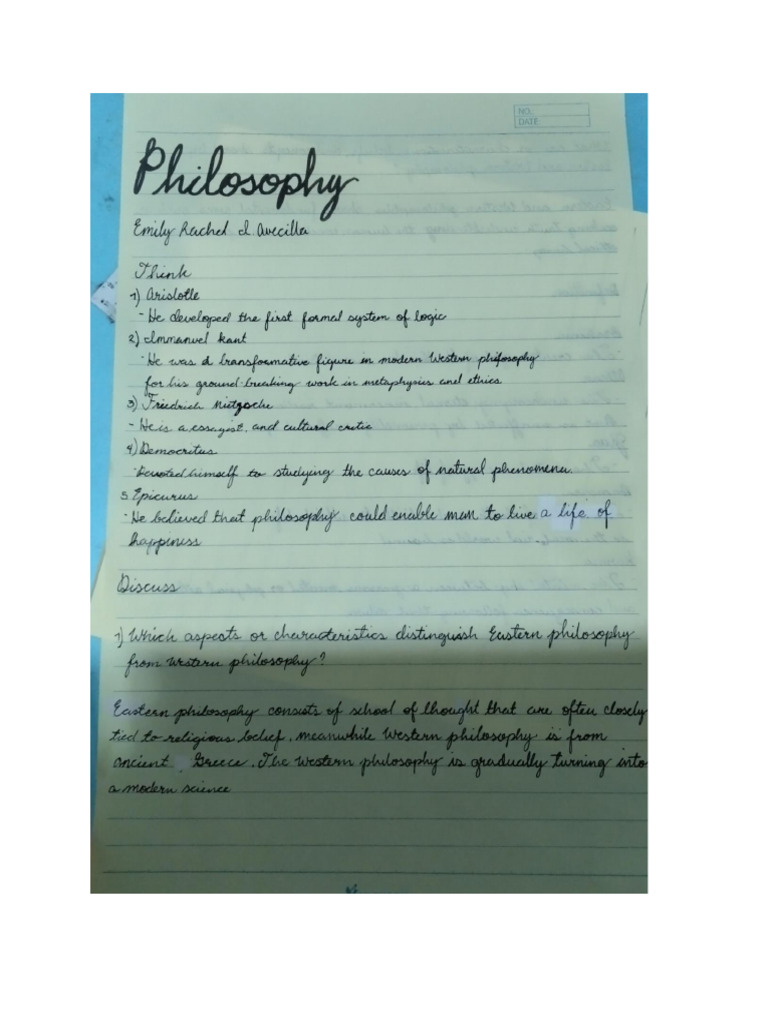 NO.:
DATE:
Philosophy
Emily Rachel I Avecilla
Think
1) Aristotle
- He developed the first formal system of logic
2) Immanuel kant
- He was a transformative figure in modern Western philosophy
for his ground-breaking work in metaphysics and ethics.
3) Friedrich Nietzsche
- He is a essayist, and cultural critic
4) Democritus
- Devoted himself to studying the causes of natural phenomena.
5 Epicurus
- He believed that philosophy could enable man to live a life of
happiness
Discuss
1) Which aspects or characteristics distinguish Eastern philosophy
from western philosophy?
Eastern philosophy consists of school of thought that are often closely
tied to religious belief, meanwhile Western philosophy is from
ancient Greece. The western philosophy is gradually turning into
a modern science